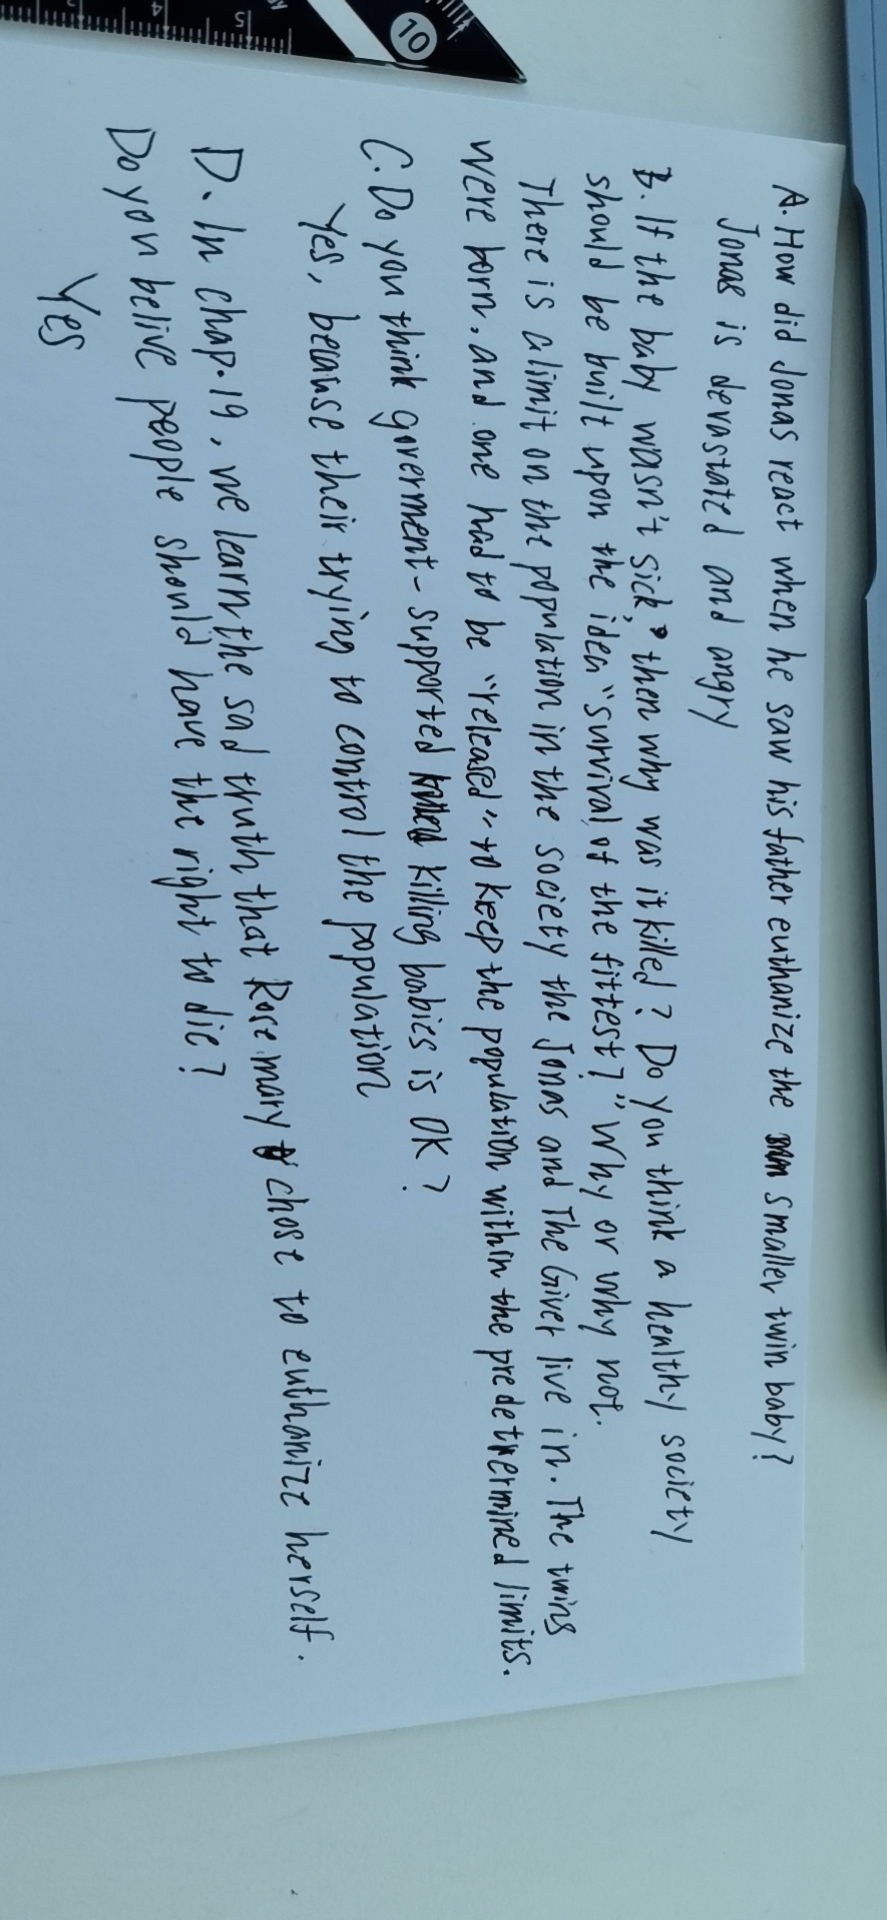 A. How did Jonas react when he saw his father euthanize the smaller twin baby?
Jonas is devastated and angry
B. If the baby wasn't sick, then why was it killed? Do you think a healthy society
should be built upon the idea "survival of the fittest?" Why or why not.
There is a limit on the population in the society the Jonas and The Giver live in. The twins
were born, and one had to be "released" to keep the population within the predetermined limits.
C. Do you think goverment-supported killing babies is OK?
Yes, because their trying to control the population
D. In chap.19, we learn the sad truth that Rosemary chose to euthanize herself.
Do you belive people should have the right to die?
Yes
10
5
4